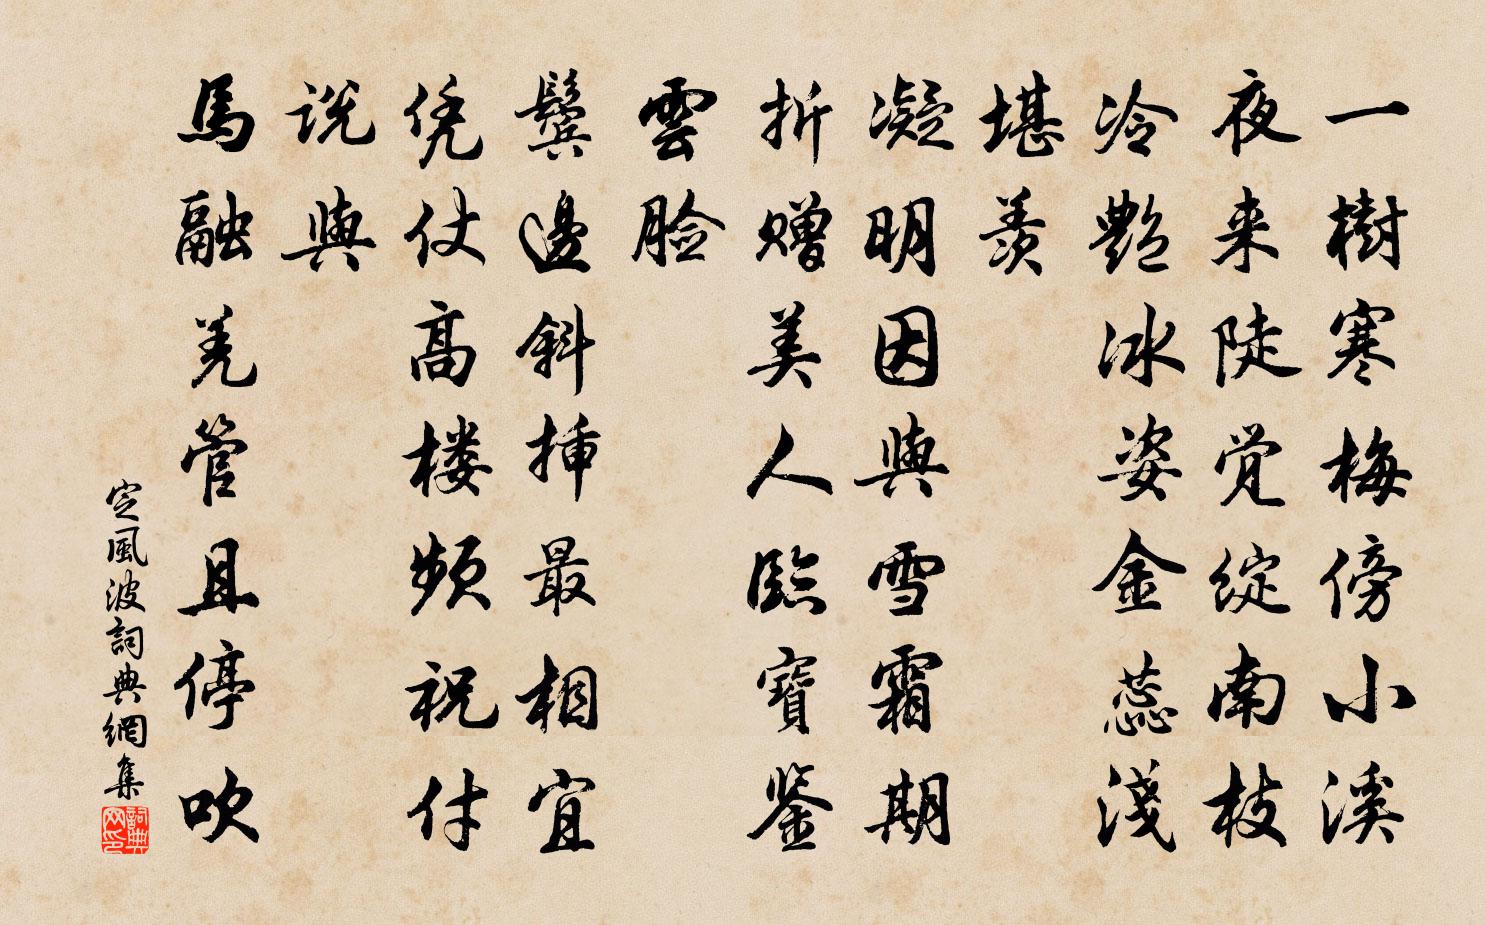 一樹寒梅傍小溪
夜来陡觉綻南枝
冷艷冰姿金蕊淺
堪羨
凝明因與雪霜期
折赠美人臨寶鉴
雲脸
鬓邊斜挿最相宜
凭仗高楼频祝付
说與
馬融羌管且停吹
定風波詞典網集
詞典
网印